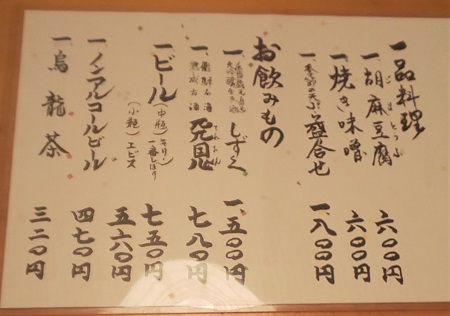 一品料理
一 胡麻豆腐 六〇〇円
ごまとうふ
一 焼き味噌 六〇〇円
一 季節の天ぷら盛合せ 一、八〇〇円
お飲みもの
一 しずく 一、五〇〇円
一 発見 七八〇円
一 ビール
(中瓶) キリン一番しぼり 七五〇円
(小瓶) エビス 五六〇円
一 ノンアルコールビール 四七〇円
一 烏龍茶 三二〇円